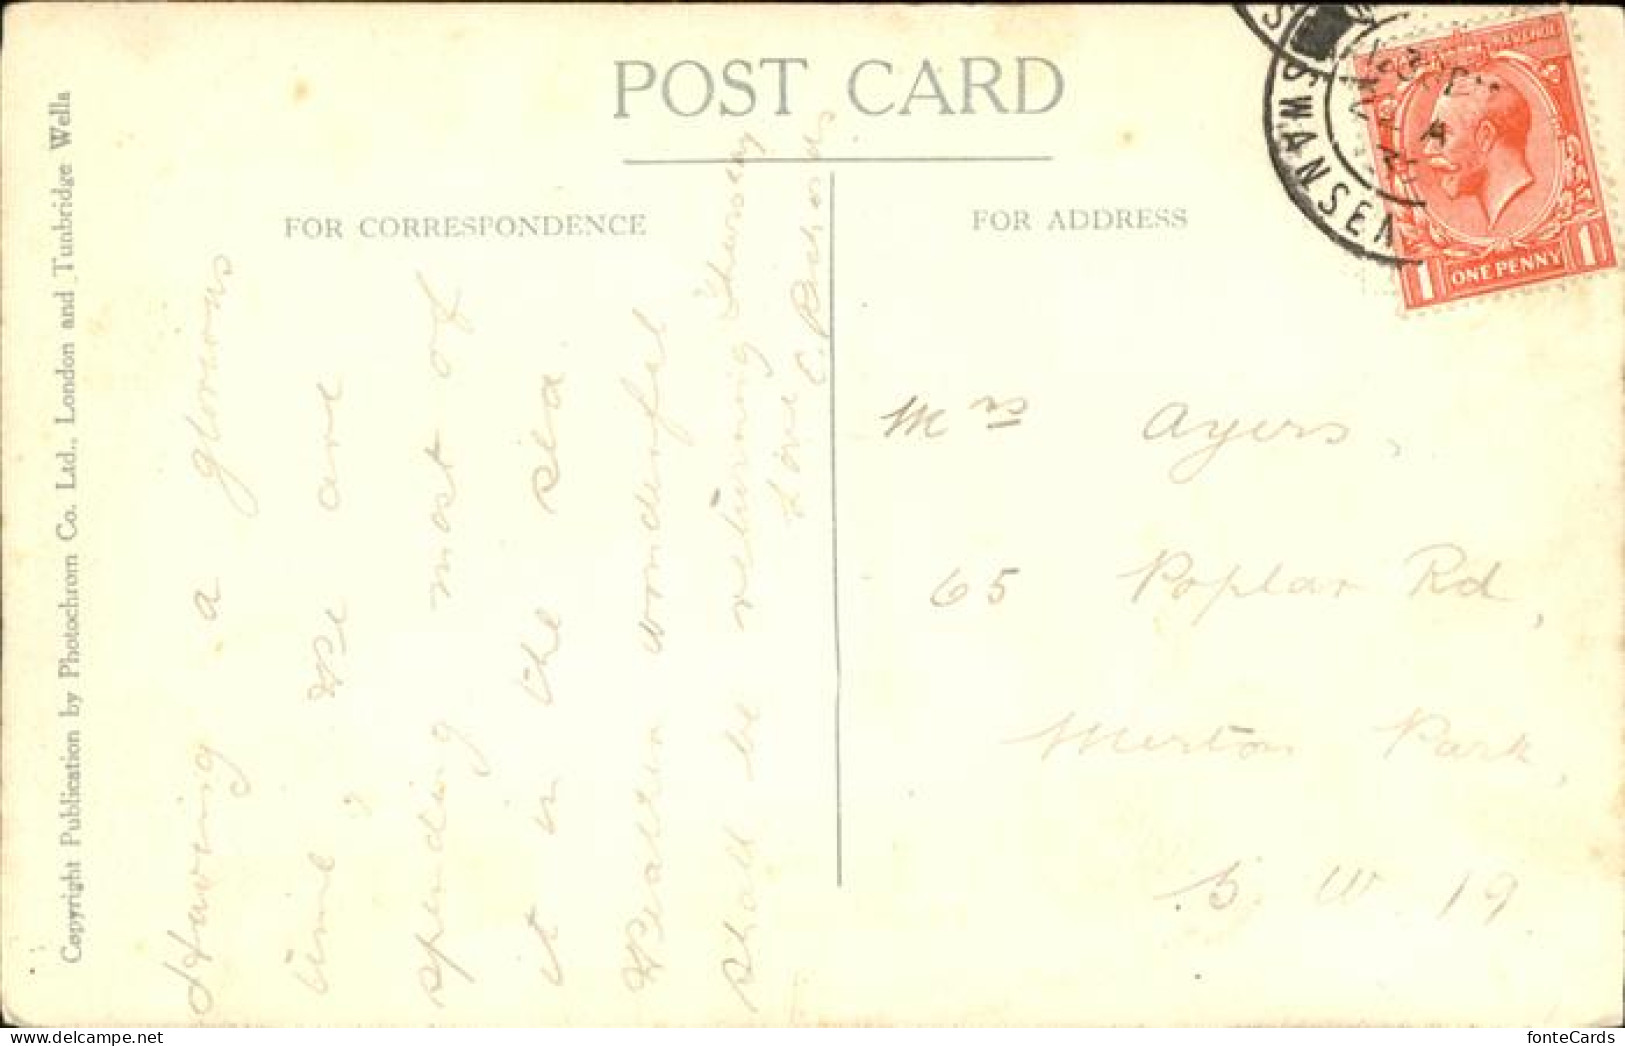 POST CARD
FOR CORRESPONDENCE
FOR ADDRESS
Copyright Publication by Photochrom Co. Ltd., London and Tunbridge Wells
Having a glorious
time, We are
spending most of
it in the sea.
Weather wonderful
shall be returning Thursday
Love C.
Mrs Ayers,
65 Poplar Rd,
Merton Park,
S. W. 19
SWANSEA
REVENUE
1 ONE PENNY 1
fonteCards